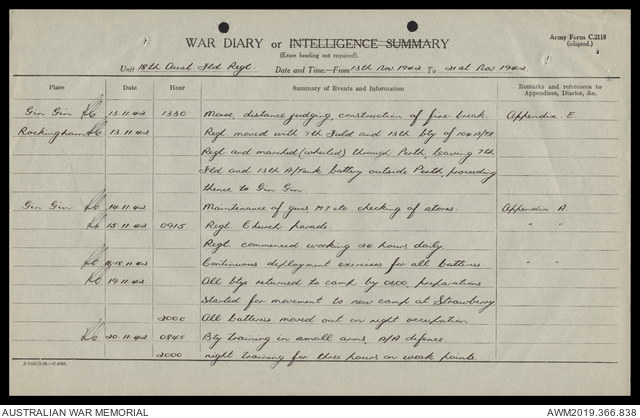 WAR DIARY or INTELLIGENCE SUMMARY
(Erase heading not required).
Army Form C.2118
(adapted.)
Unit 18th Aust Fld Regt. Date and Time—From 13th Nov 1942 To 21st Nov 1942
Place Date Hour Summary of Events and Information Remarks and references to Appendices, Diaries, &c.
Gin Gin 13.11.42 1330 Morse, distance judging, construction of fire break. Appendix E.
Rockingham 13.11.42 Regt moved with 7th Field and 13th bty of 104 A/TK
Regt and marched (wheeled) through Perth, leaving 7th
Fld and 13th A/Tank battery outside Perth, proceeding
thence to Gin Gin
Gin Gin 14.11.42 Maintenance of guns M.T etc. checking of stores. Appendix A.
15.11.42 0915 Regt. Church parade. " "
Regt commenced working 24 hours daily
16-18.11.42 Continuous deployment exercises for all batteries " "
19.11.42 All btys returned to camp by 0600, preparations
started for movement to new camp at Strawberry
2000 All batteries moved out on night occupation
20.11.42 0845 Bty training in small arms, A/A defence.
2000 night training for three hours on weak points
AUSTRALIAN WAR MEMORIAL AWM2019.366.838